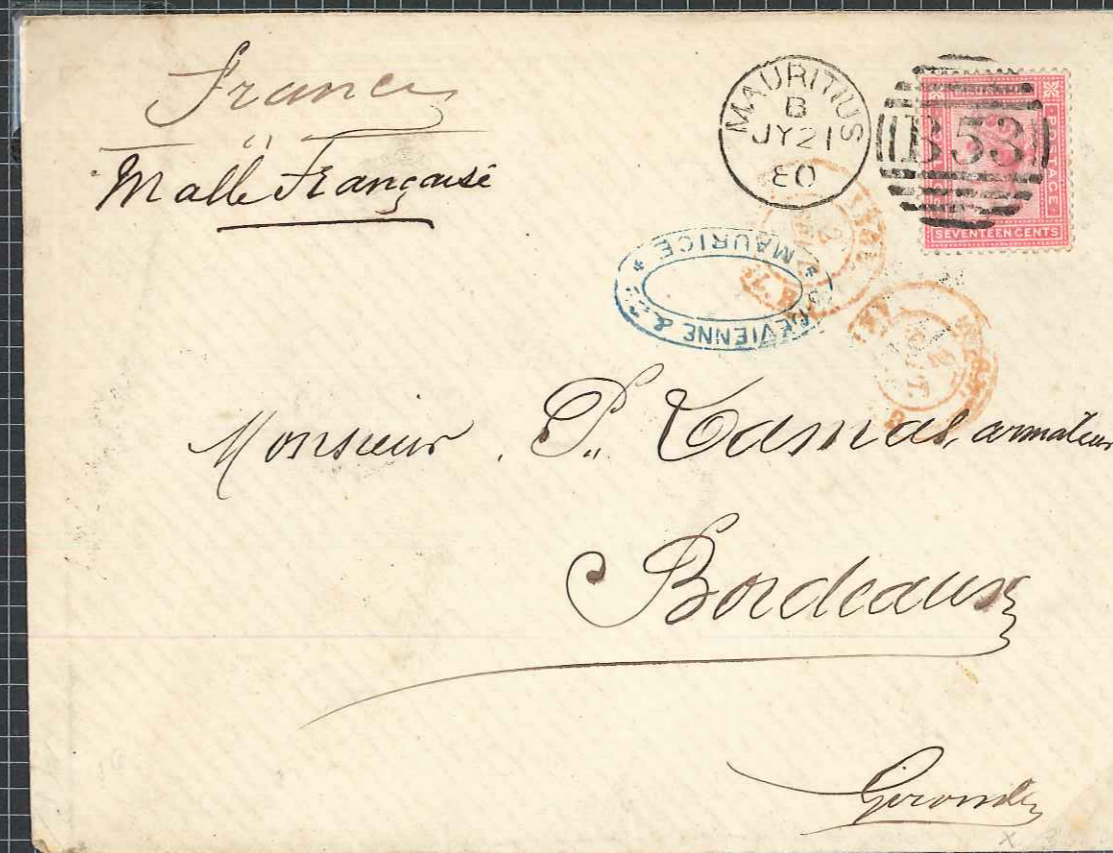 France
Malle Française
MAURITIUS
B
JY21
80
B53
POSTAGE
SEVENTEEN CENTS
DEVIENNE & Cie
* MAURICE *
Monsieur P. Damas, armateur
Bordeaux
Gironde